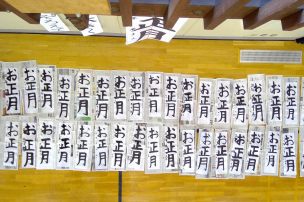 お正月 お正月 お正月 お正月 お正月 お正月 お正月 お正月 お正月 お正月 お正月 お正月 お正月 お正月 お正月 お正月 お正月
お正月 お正月 お正月 お正月 お正月 お正月 お正月 お正月 お正月 お正月 お正月 お正月 お正月 お正月 お正月 お正月 お正月